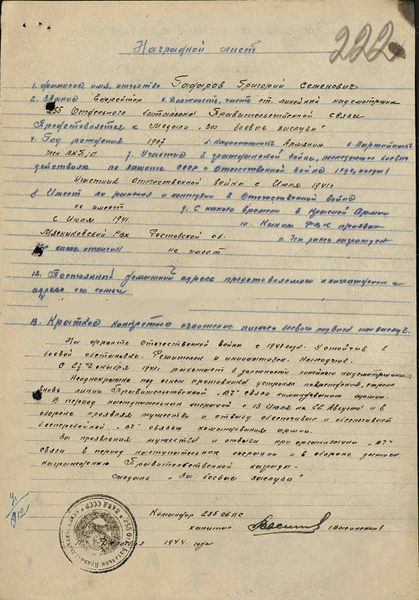 Наградной лист
222
1. фамилия, имя, отчество Годоров Григорий Семенович
2. Звание Ефрейтор 3. Должность, часть ст. линейный надсмотрщик
235 Отдельного батальона Правительственной связи
Представляется к Медали "За боевые заслуги"
4. Год рождения 1907 5. Национальность Армянин 6. Партийность
чл ВКП/б 7. Участие в гражданской войне, последующих боевых
действиях по защите СССР и Отечественной войне /где, когда/
Участник Отечественной войны с Июля 1941г
8. Имеет ли ранения и контузии в Отечественной войне
не имеет 9. С какого времени в Красной Армии
с Июля 1941 10. Каким РВК призван
Мясниковский Рвк Ростовской об. 11. Чем ранее награжден
не имеет
12. Постоянный домашний адрес представляемого к награждению и
адрес его семьи
13. Краткое конкретное изложение личного боевого подвига или заслуг.
На фронте отечественной войны с 1941 года. Устойчив в
боевой обстановке. Решителен и инициативен. Находчив.
Декабря 1941 работает в должности линейного надсмотрщика
Неоднократно под огнем противника устранял повреждения, строил
вновь линии Правительственной "ВЧ" связи командованию армии.
В период наступательных операций с 13 Июля по 22 Августа и в
обороне проявляя мужество и отвагу обеспечивал и обеспечивает
бесперебойной "ВЧ" связью командование армии.
За проявление мужества и отваги при организации "ВЧ"
связи в период наступательных операций и в обороне достоин
награждения Правительственной награды
Медаль "За боевые заслуги"
Командир 235 ОБПС
капитан /Василенко/
1944 года